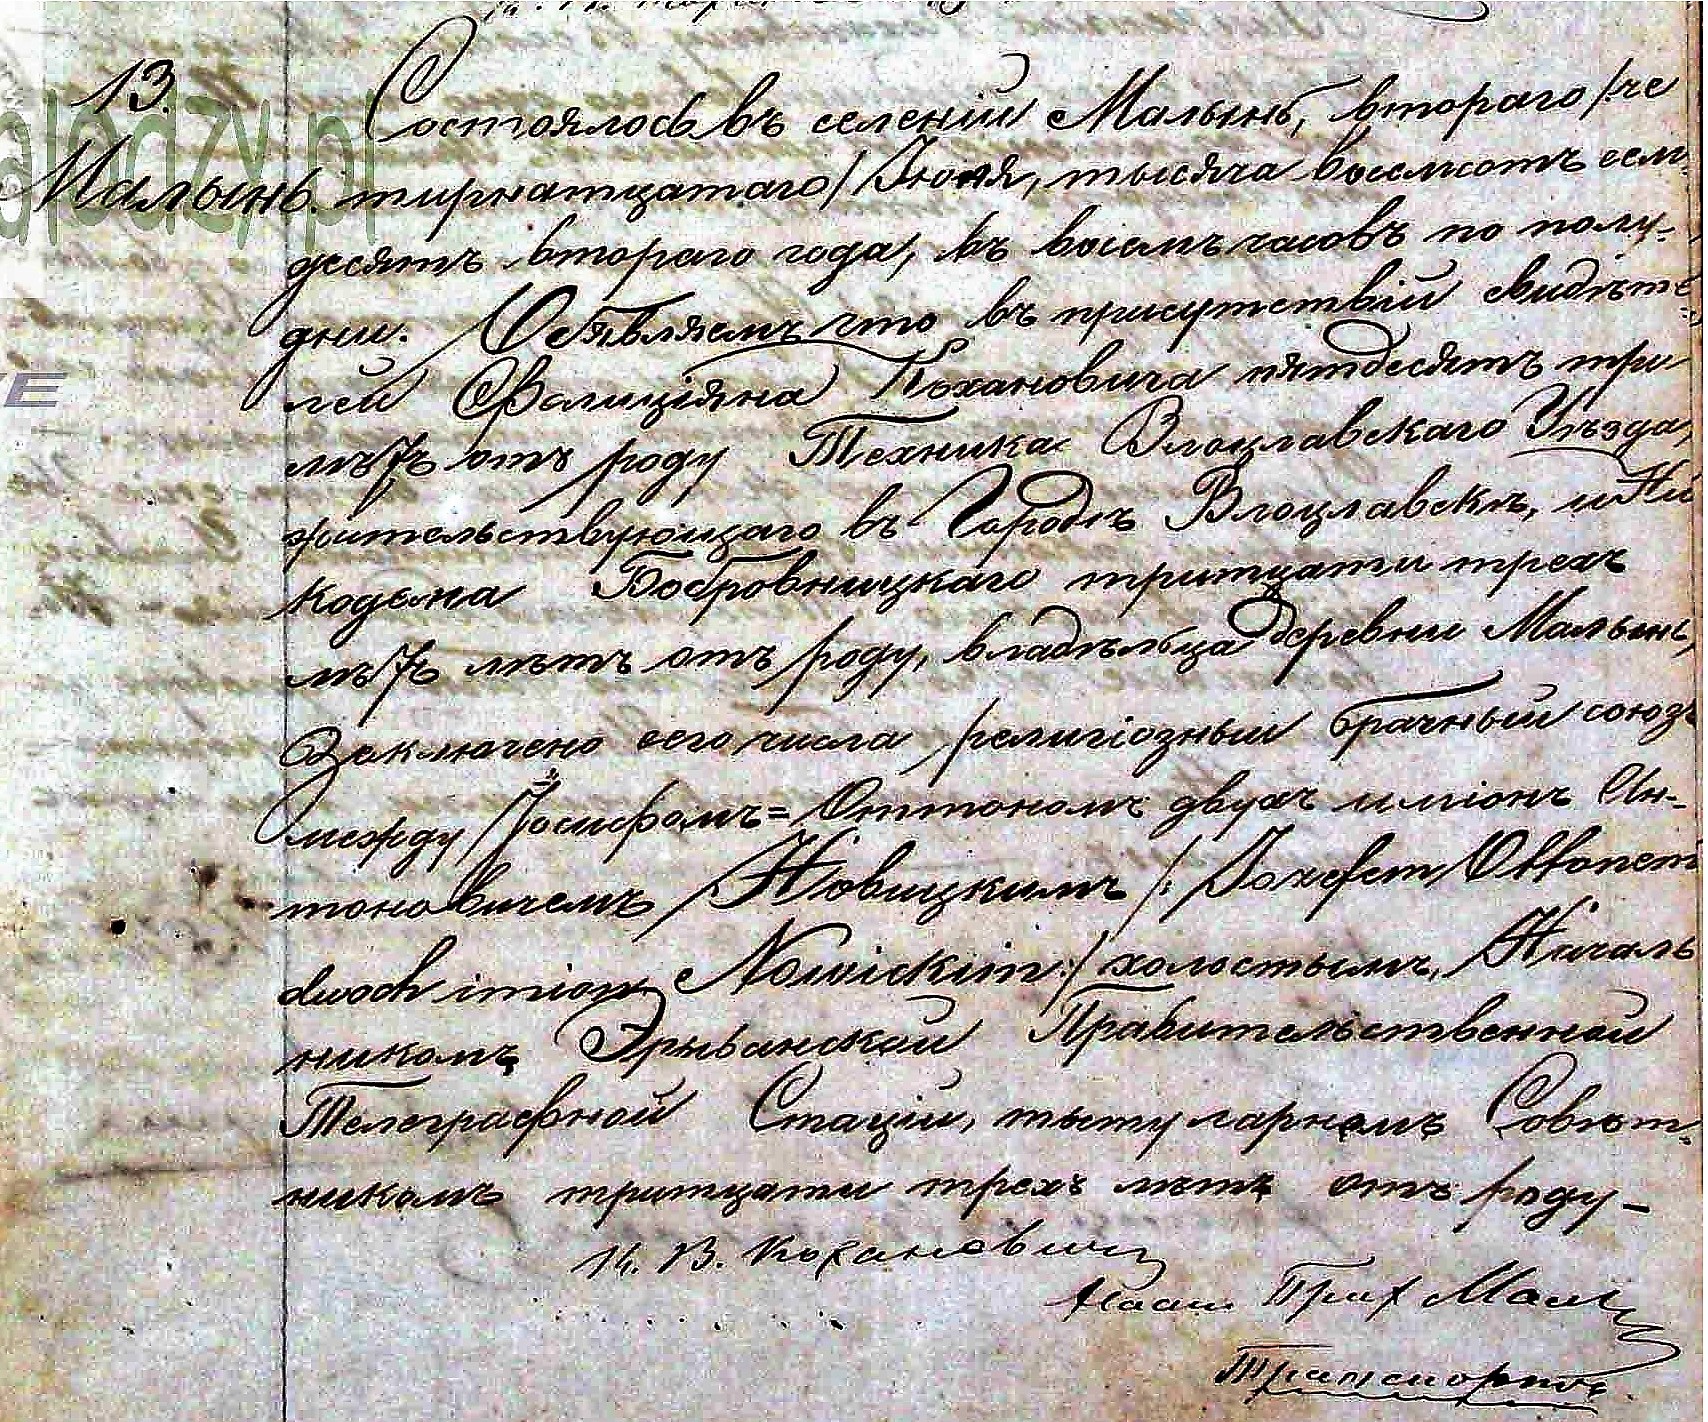 13.
Состоялось въ селеніи Малынь, втораго /:че
Малынь. тырнатцатаго/ Іюня, тысяча восемсотъ семь
десятъ втораго года, въ восемъ часовъ по полу-
дни. Объявляемъ что въ присутствіи свидѣте
лей Фелиціяна Кохановича пятдесятъ три
лѣтъ отъ роду Техника Влоцлавскаго Уѣзда,
жительствующаго въ Городѣ Влоцлавскѣ, и Ни
кодема Бобровницкаго тритцати трехъ
лѣтъ лѣтъ отъ роду, владѣльца деревни Малынь,
Заключено сего числа религіозный брачный союзъ
между Іосифомъ=Оттономъ двухъ имionъ Ан-
тоновичемъ Новицкимъ /: Jozefem Ottonem
dwoch imion Nowickim:/ холостымъ, Началь
никомъ Эриванской Правительственной
Телеграфной Стаціи, тытуларнемъ Совѣт-
никомъ тритцати трехъ лѣтъ отъ роду –
Кохановичъ